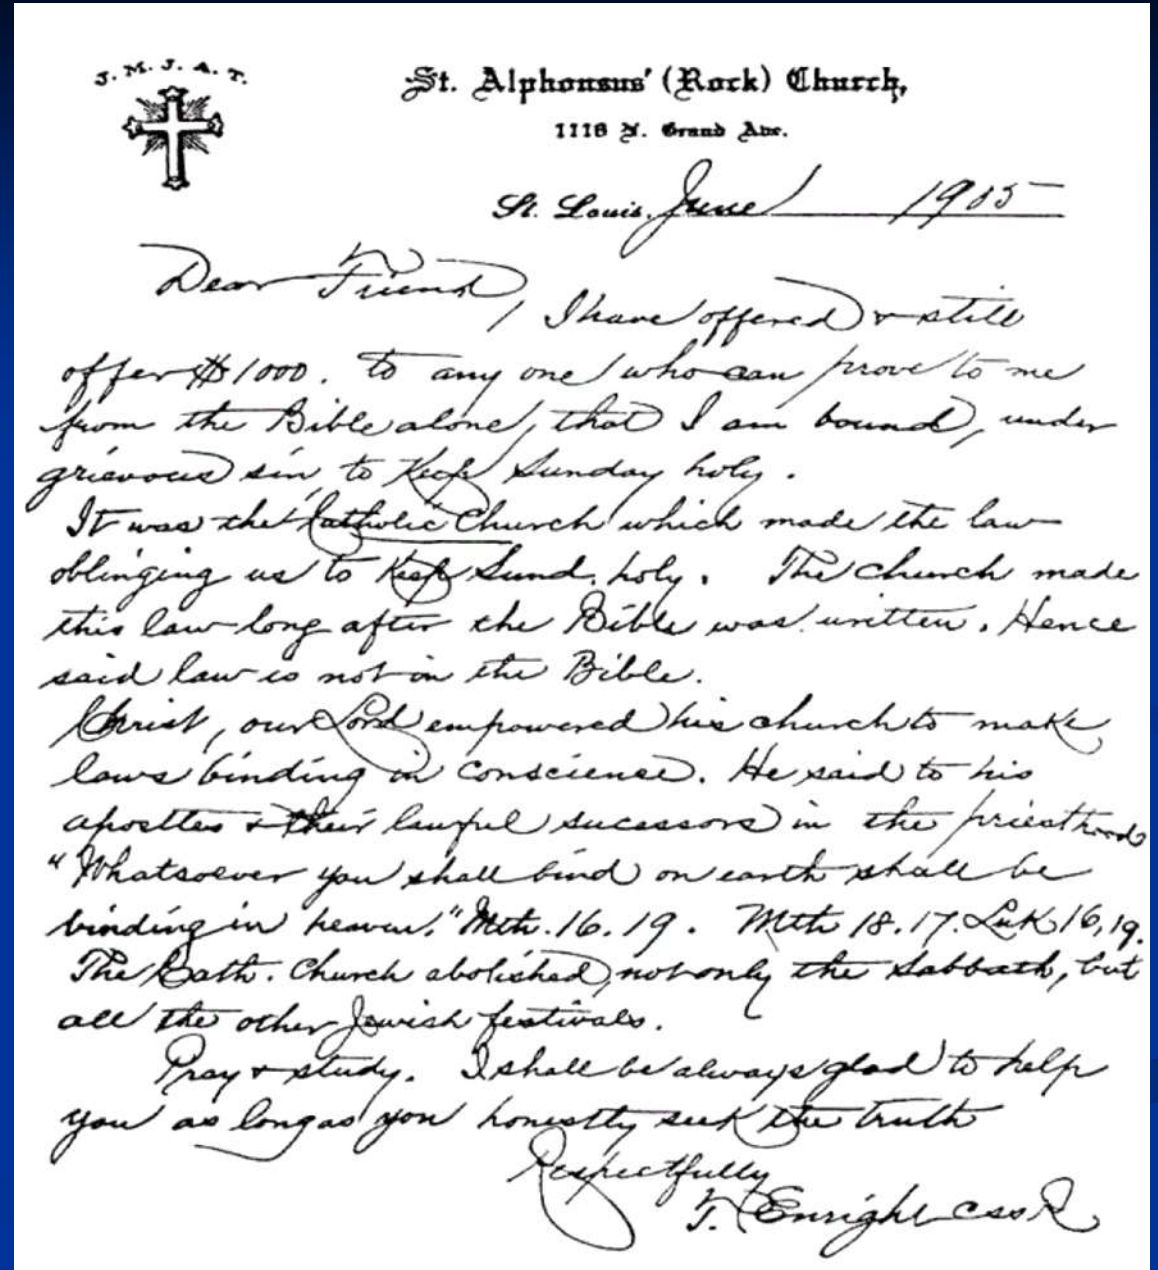 J. M. J. A. T.
St. Alphonsus' (Rock) Church,
1118 N. Grand Ave.
St. Louis, June 1905
Dear Friend,
I have offered & still
offer $1000. to any one who can prove to me
from the Bible alone, that I am bound, under
grievous sin, to Keep Sunday holy.
It was the Catholic Church which made the law
oblinging us to Keep Sund. holy. The church made
this law long after the Bible was written. Hence
said law is not in the Bible.
Christ, our Lord empowered his church to make
laws binding in conscience. He said to his
apostles & their lawful sucessors in the priesthood
"Whatsoever you shall bind on earth shall be
binding in heaven." Mth. 16. 19. Mth 18. 17. Luk 16, 19.
The Cath. Church abolished, not only the Sabbath, but
all the other Jewish festivals.
Pray & study. I shall be always glad to help
you as long as you honestly seek the truth
Respectfully
T. Enright CSSR